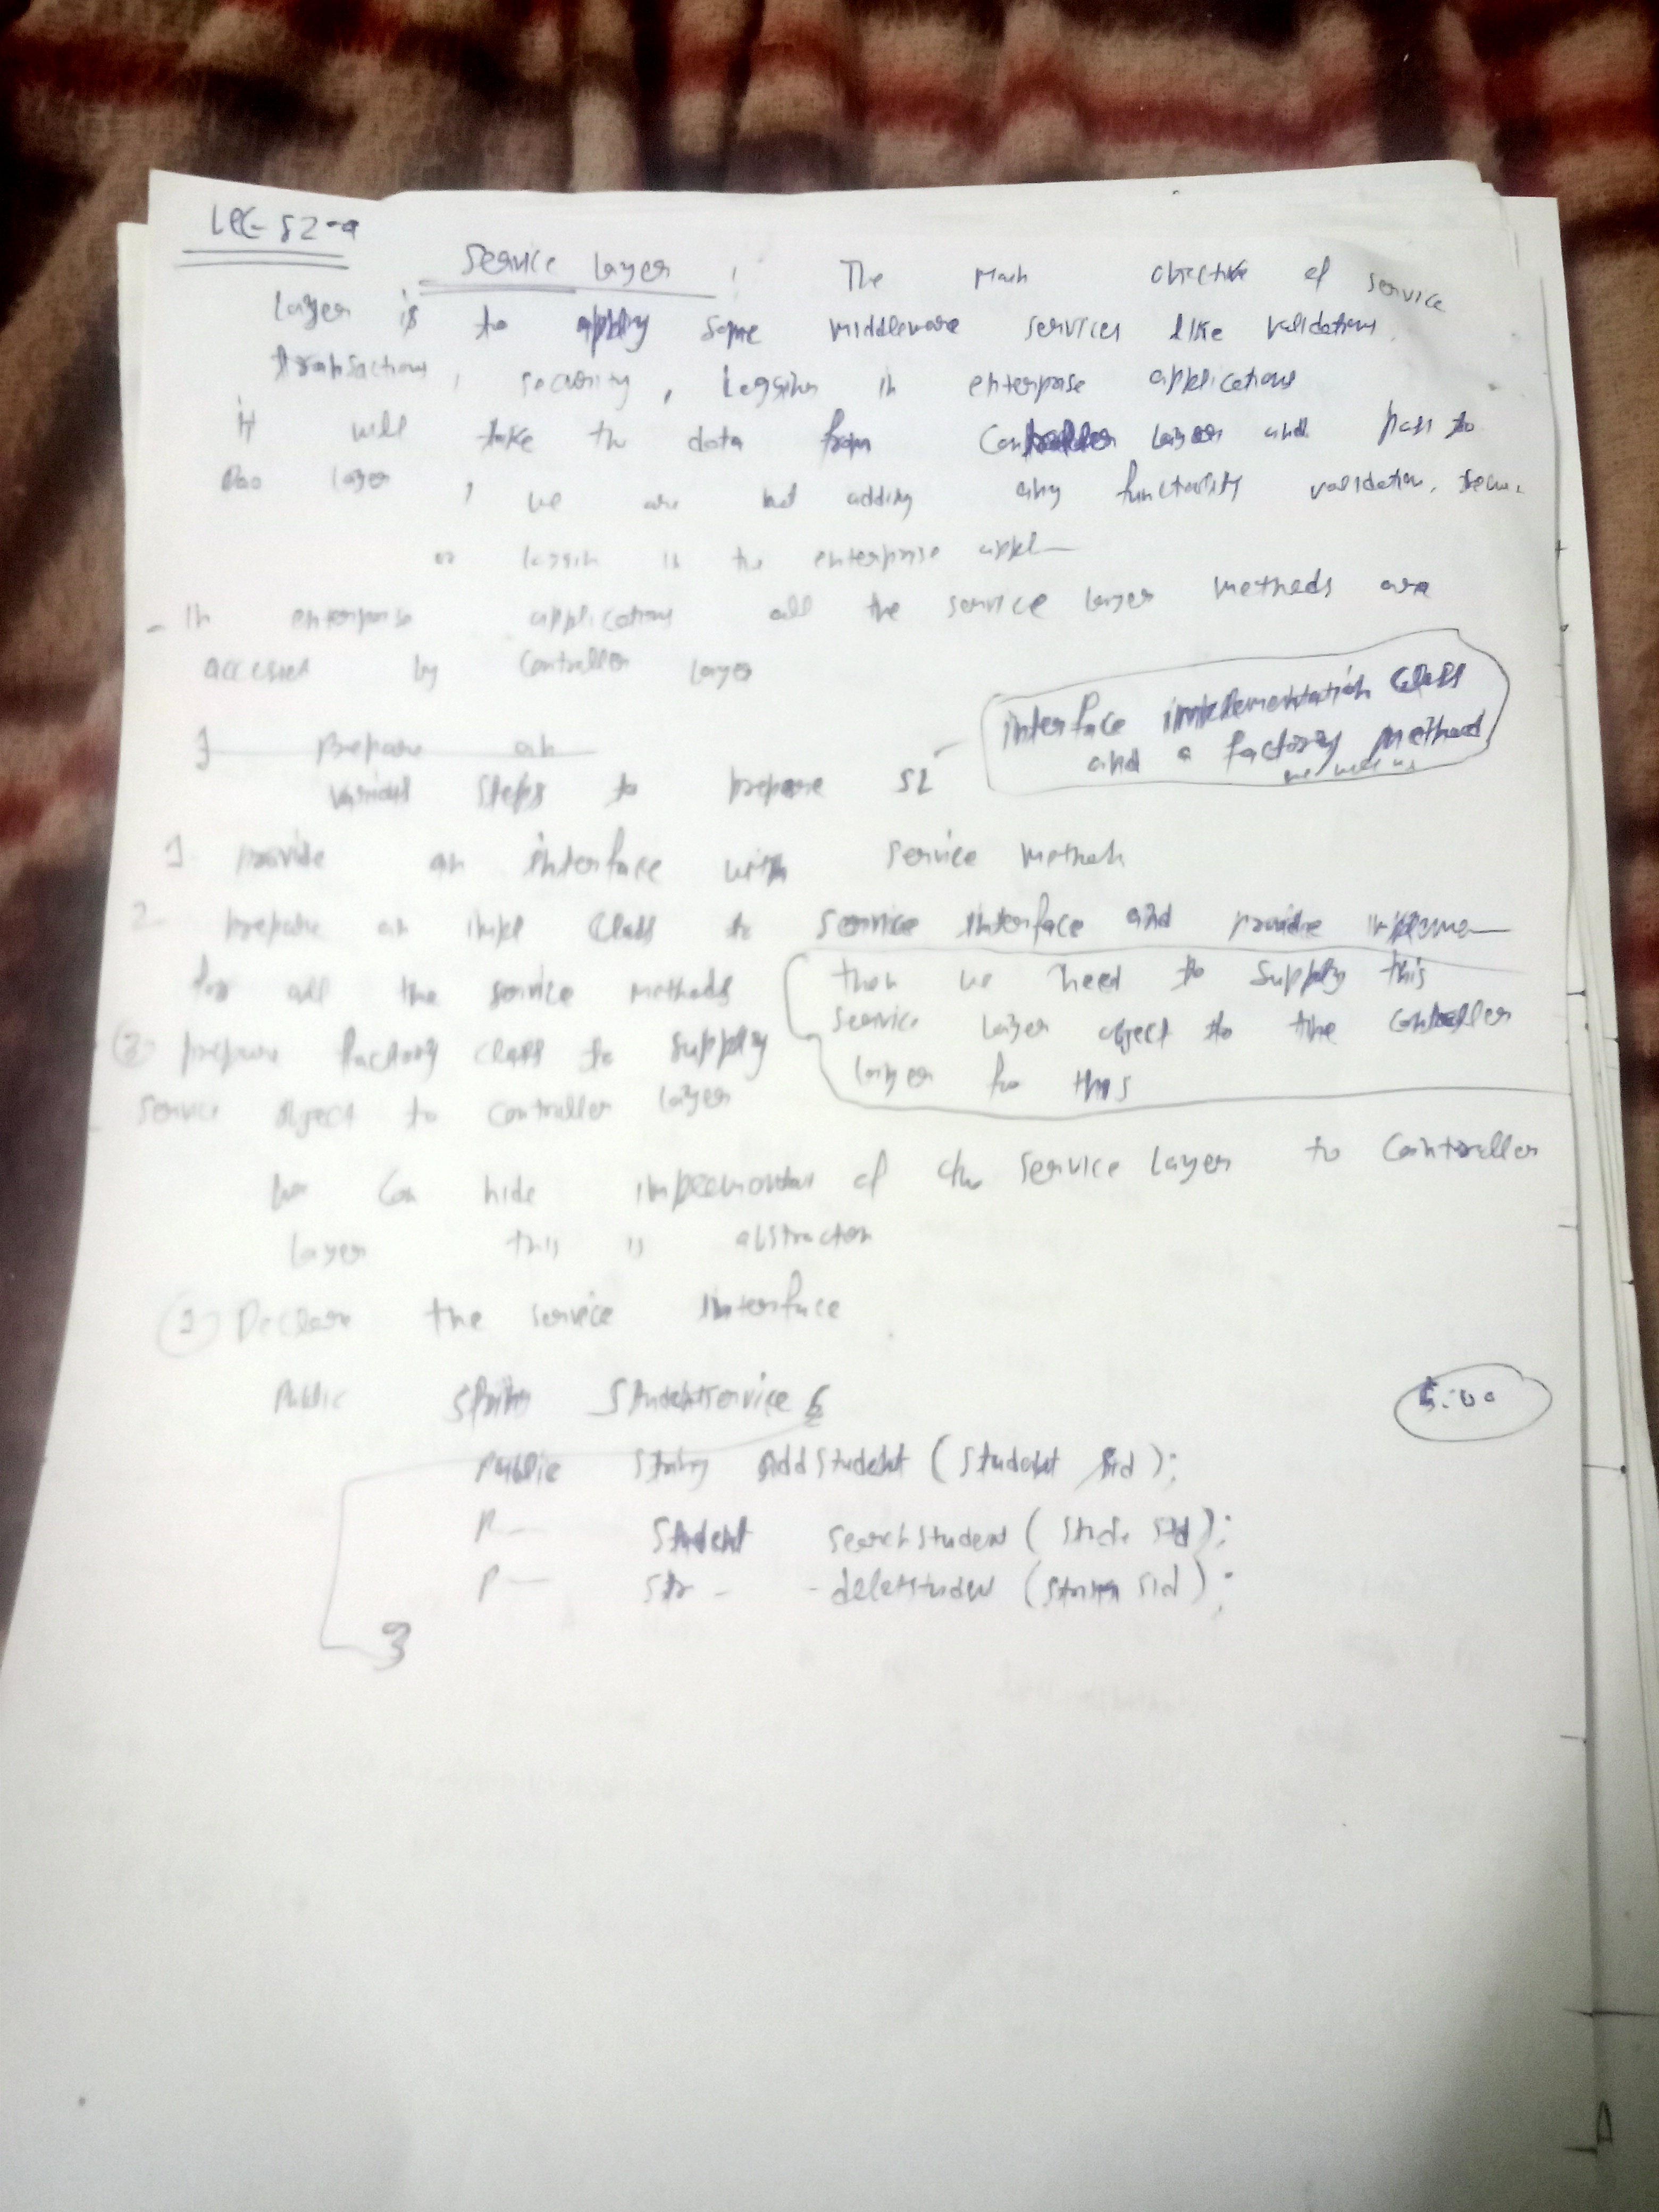 Lec-52-a
Service Layer : The Main objective of service
Layer is to apply some middleware services like validations,
transactions, security, Loggin in enterprise applications
it will take the data from Controller Layer and pass to
Dao layer, we are not adding any validation, secu.
or loggin in the enterprise appl—
- In enterprise applications all the service layer methods are
accessed by Controller Layer
1 Prepare an
various steps to prepare SL - interface implementation class
and a factory Method
we will us
1 provide an interface with service methods
2- prepare an impl Class to service interface and provide impleme—
for all the service methods
then we need to supply this
service layer object to the controller
layer for this
3 prepare factory class to supply
service object to controller layer
we can hide of the service Layer to Controller
layer this is abstraction
1 Declare the service interface
Public StudentService {
Public String AddStudent (Student );
P— Student searchStudent ( );
P— Str - - (String sid);
}
5:00